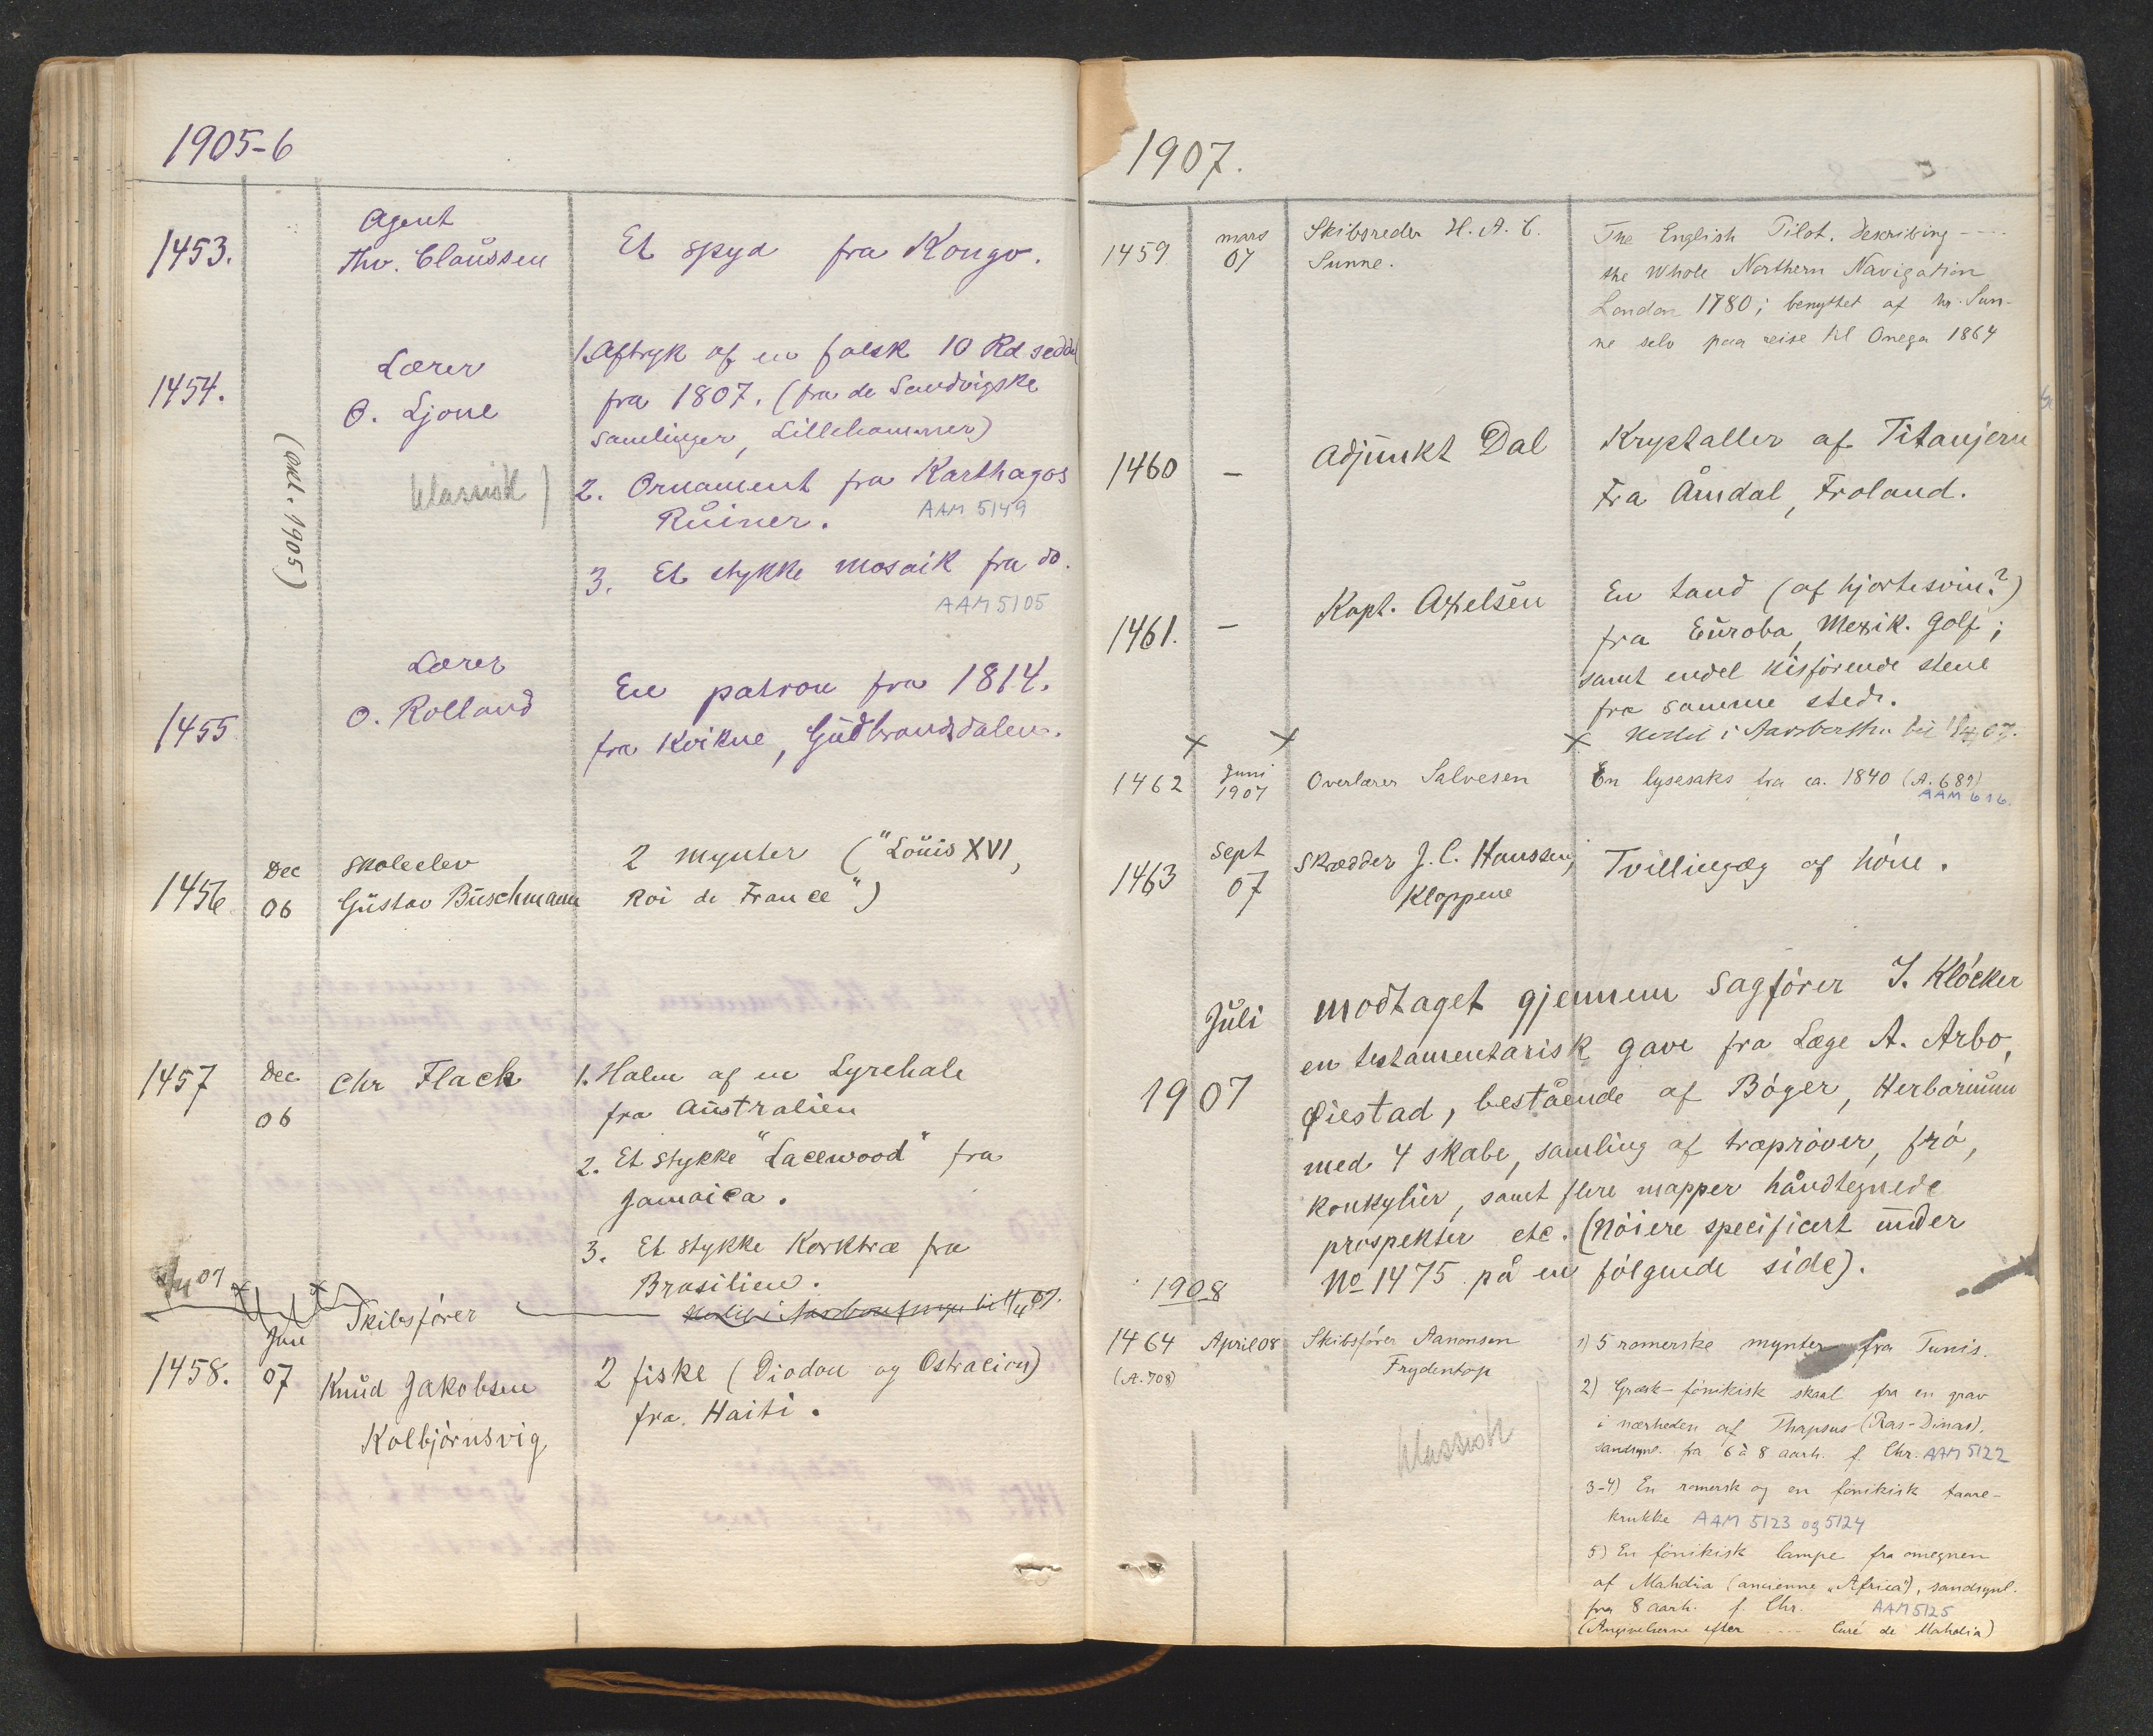 1905-6
1453.
Agent
Thv. Claussen
Et spyd fra Kongo.
(okt. 1905)
1454.
Lærer
O. Ljone
1. Aftryk af en falsk 10 Rd seddel
fra 1807. (fra de Sandvigske
samlinger, Lillehammer)
klassisk)
2. Ornament fra Karthagos
Ruiner.
AAM 5149
3. Et stykke mosaik fra do.
AAM 5105
1455
Lærer
O. Rolland
En patron fra 1814.
fra Kvikne, Gudbrandsdalen.
1456
Dec
06
Skoleelev
Gustav Buschmann
2 mynter ("Louis XVI,
Roi de France")
1457
Dec
06
Chr Flack
1. Halen af en Lyrehale
fra Australien
2. Et stykke "Lacewood" fra
Jamaica.
3. Et stykke Korktræ fra
Brasilien.
07
1458.
Jan
07
Skibsfører
Knud Jakobsen
Kolbjørnsvig
2 fiske (Diodon og Ostracion)
fra Haiti.
1907.
1459
mars
07
Skibsreder H. A. C.
Sunne.
The English Pilot. Describing ----
the Whole Northern Navigation
London 1780; benyttet af hr. Sun-
ne selv paa reise til Onega 1864
1460
-
Adjunkt Dal
Krystaller af Titanjern
Fra Åmdal, Froland.
1461.
-
Kapt. Axelsen
En tand (af hjortesvin?)
fra Euroba, Mexik. Golf;
samt endel kisførende stene
fra samme sted.
x x x
07.
1462
Juni
1907
Overlærer Salvesen
En lysesaks fra ca. 1840 (A. 689)
AAM 616.
1463
Sept
07
Skrædder J. C. Hanssen,
Kloppene
Tvillingæg af høne.
Juli
1907
Modtaget gjennem Sagfører J. Kløcker
en testamentarisk gave fra Læge A. Arbo,
Øiestad, bestående af Bøger, Herbarium
med 4 skabe, samling af træprøver, frø,
konkylier, samt flere mapper håndtegnede
prospekter etc. (Nøiere specificert under
No 1475 på en følgende side).
1908
1464
(A. 708)
April 08
Skibsfører Aanonsen
Frydentop
klassisk
1) 5 romerske mynter fra Tunis.
2) Græsk-fønikisk skaal fra en grav
i nærheden af Thapsus (Ras-Dinas).
sandsynl. fra 6 à 8 aarh. f. Chr. AAM 5122
3-4) En romersk og en fønikisk taare-
krukke AAM 5123 og 5124
5) En fønikisk lampe fra omegnen
af Mahdia (ancienne "Africa"), sandsynl.
fra 8 aarh. f. Chr. AAM 5125
(Angivelserne efter ---- Curé de Mahdia)